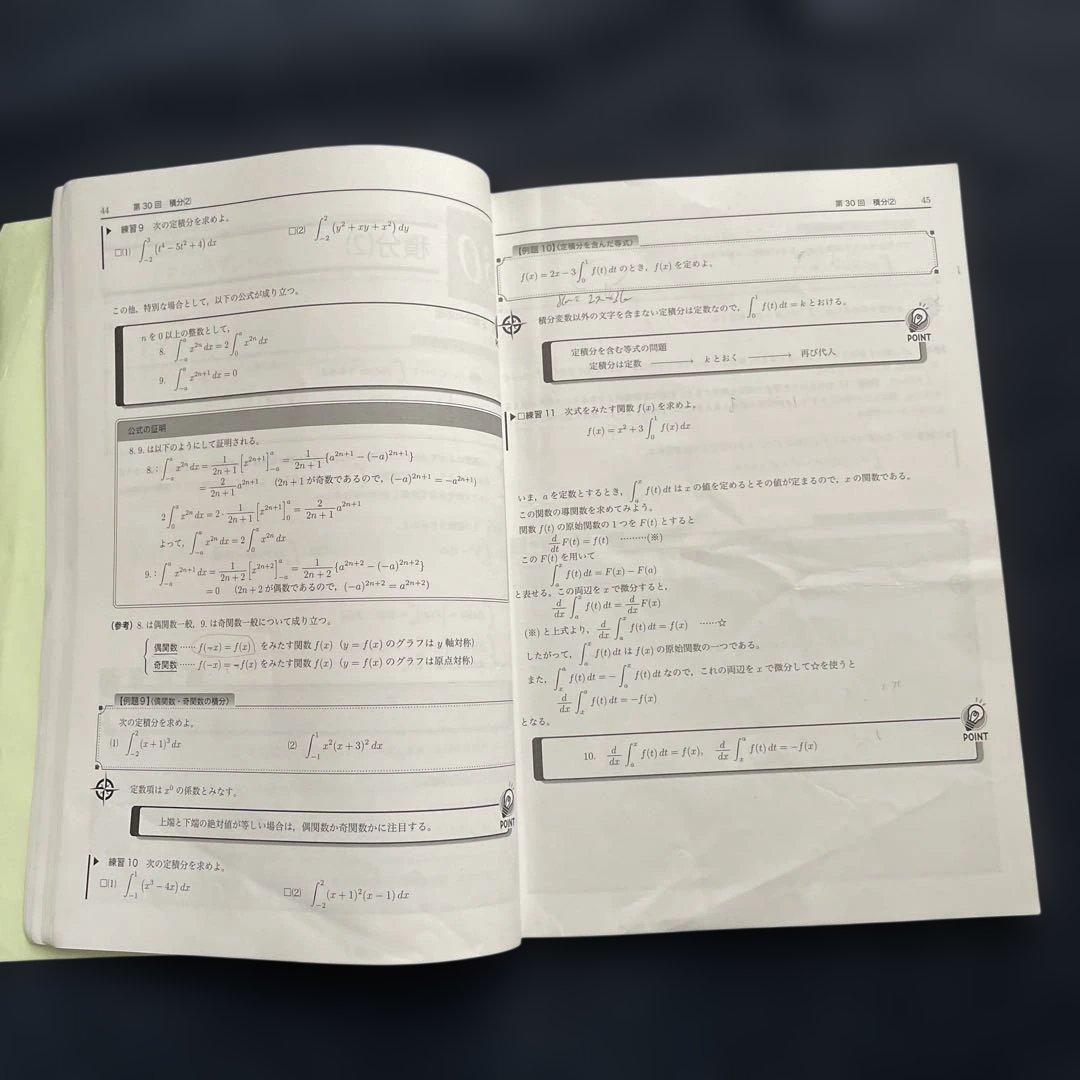 44 第30回 積分(2)
▶ 練習9 次の定積分を求めよ。
□(1) ∫_{-2}^{3} (t⁴ − 5t² + 4) dx □(2) ∫_{-2}^{2} (y² + xy + x²) dy
この他，特別な場合として，以下の公式が成り立つ。
n を 0 以上の整数として，
8. ∫_{-a}^{a} x^{2n} dx = 2∫_{0}^{a} x^{2n} dx
9. ∫_{-a}^{a} x^{2n+1} dx = 0
公式の証明
8. 9. は以下のようにして証明される。
8.：∫_{-a}^{a} x^{2n} dx = 1/(2n+1) [x^{2n+1}]_{-a}^{a} = 1/(2n+1) {a^{2n+1} − (−a)^{2n+1}}
= 2/(2n+1) a^{2n+1} (2n+1 が奇数であるので，(−a)^{2n+1} = −a^{2n+1})
2∫_{0}^{a} x^{2n} dx = 2・1/(2n+1) [x^{2n+1}]_{0}^{a} = 2/(2n+1) a^{2n+1}
よって，∫_{-a}^{a} x^{2n} dx = 2∫_{0}^{a} x^{2n} dx
9.：∫_{-a}^{a} x^{2n+1} dx = 1/(2n+2) [x^{2n+2}]_{-a}^{a} = 1/(2n+2) {a^{2n+2} − (−a)^{2n+2}}
= 0 (2n+2 が偶数であるので，(−a)^{2n+2} = a^{2n+2})
(参考) 8. は偶関数一般，9. は奇関数一般について成り立つ。
偶関数 …… f(−x) = f(x) をみたす関数 f(x) (y = f(x) のグラフは y 軸対称)
奇関数 …… f(−x) = −f(x) をみたす関数 f(x) (y = f(x) のグラフは原点対称)
【例題9】(偶関数・奇関数の積分)
次の定積分を求めよ。
(1) ∫_{-2}^{2} (x+1)³ dx (2) ∫_{-1}^{1} x²(x+3)² dx
定数項は x⁰ の係数とみなす。
上端と下端の絶対値が等しい場合は，偶関数か奇関数かに注目する。
POINT
▶ 練習10 次の定積分を求めよ。
□(1) ∫_{-1}^{1} (x³ − 4x) dx □(2) ∫_{-2}^{2} (x+1)²(x−1) dx
第30回 積分(2) 45
【例題10】(定積分を含んだ等式)
f(x) = 2x − 3∫_{0}^{1} f(t) dt のとき，f(x) を定めよ。
積分変数以外の文字を含まない定積分は定数なので，∫_{0}^{1} f(t) dt = k とおける。
POINT
定積分を含む等式の問題
定積分は定数 ⟶ k とおく ⟶ 再び代入
▶□練習11 次式をみたす関数 f(x) を求めよ。
f(x) = x² + 3∫_{0}^{1} f(x) dx
いま，a を定数とするとき，∫_{a}^{x} f(t) dt は x の値を定めるとその値が定まるので，x の関数である。
この関数の導関数を求めてみよう。
関数 f(t) の原始関数の1つを F(t) とすると
d/dt F(t) = f(t) ………(※)
この F(t) を用いて
∫_{a}^{x} f(t) dt = F(x) − F(a)
と表せる。この両辺を x で微分すると，
d/dx ∫_{a}^{x} f(t) dt = d/dx F(x)
(※) と上式より，d/dx ∫_{a}^{x} f(t) dt = f(x) ……☆
したがって，∫_{a}^{x} f(t) dt は f(x) の原始関数の一つである。
また，∫_{x}^{a} f(t) dt = −∫_{a}^{x} f(t) dt なので，これの両辺を x で微分して☆を使うと
d/dx ∫_{x}^{a} f(t) dt = −f(x)
となる。
POINT
10. d/dx ∫_{a}^{x} f(t) dt = f(x), d/dx ∫_{x}^{a} f(t) dt = −f(x)